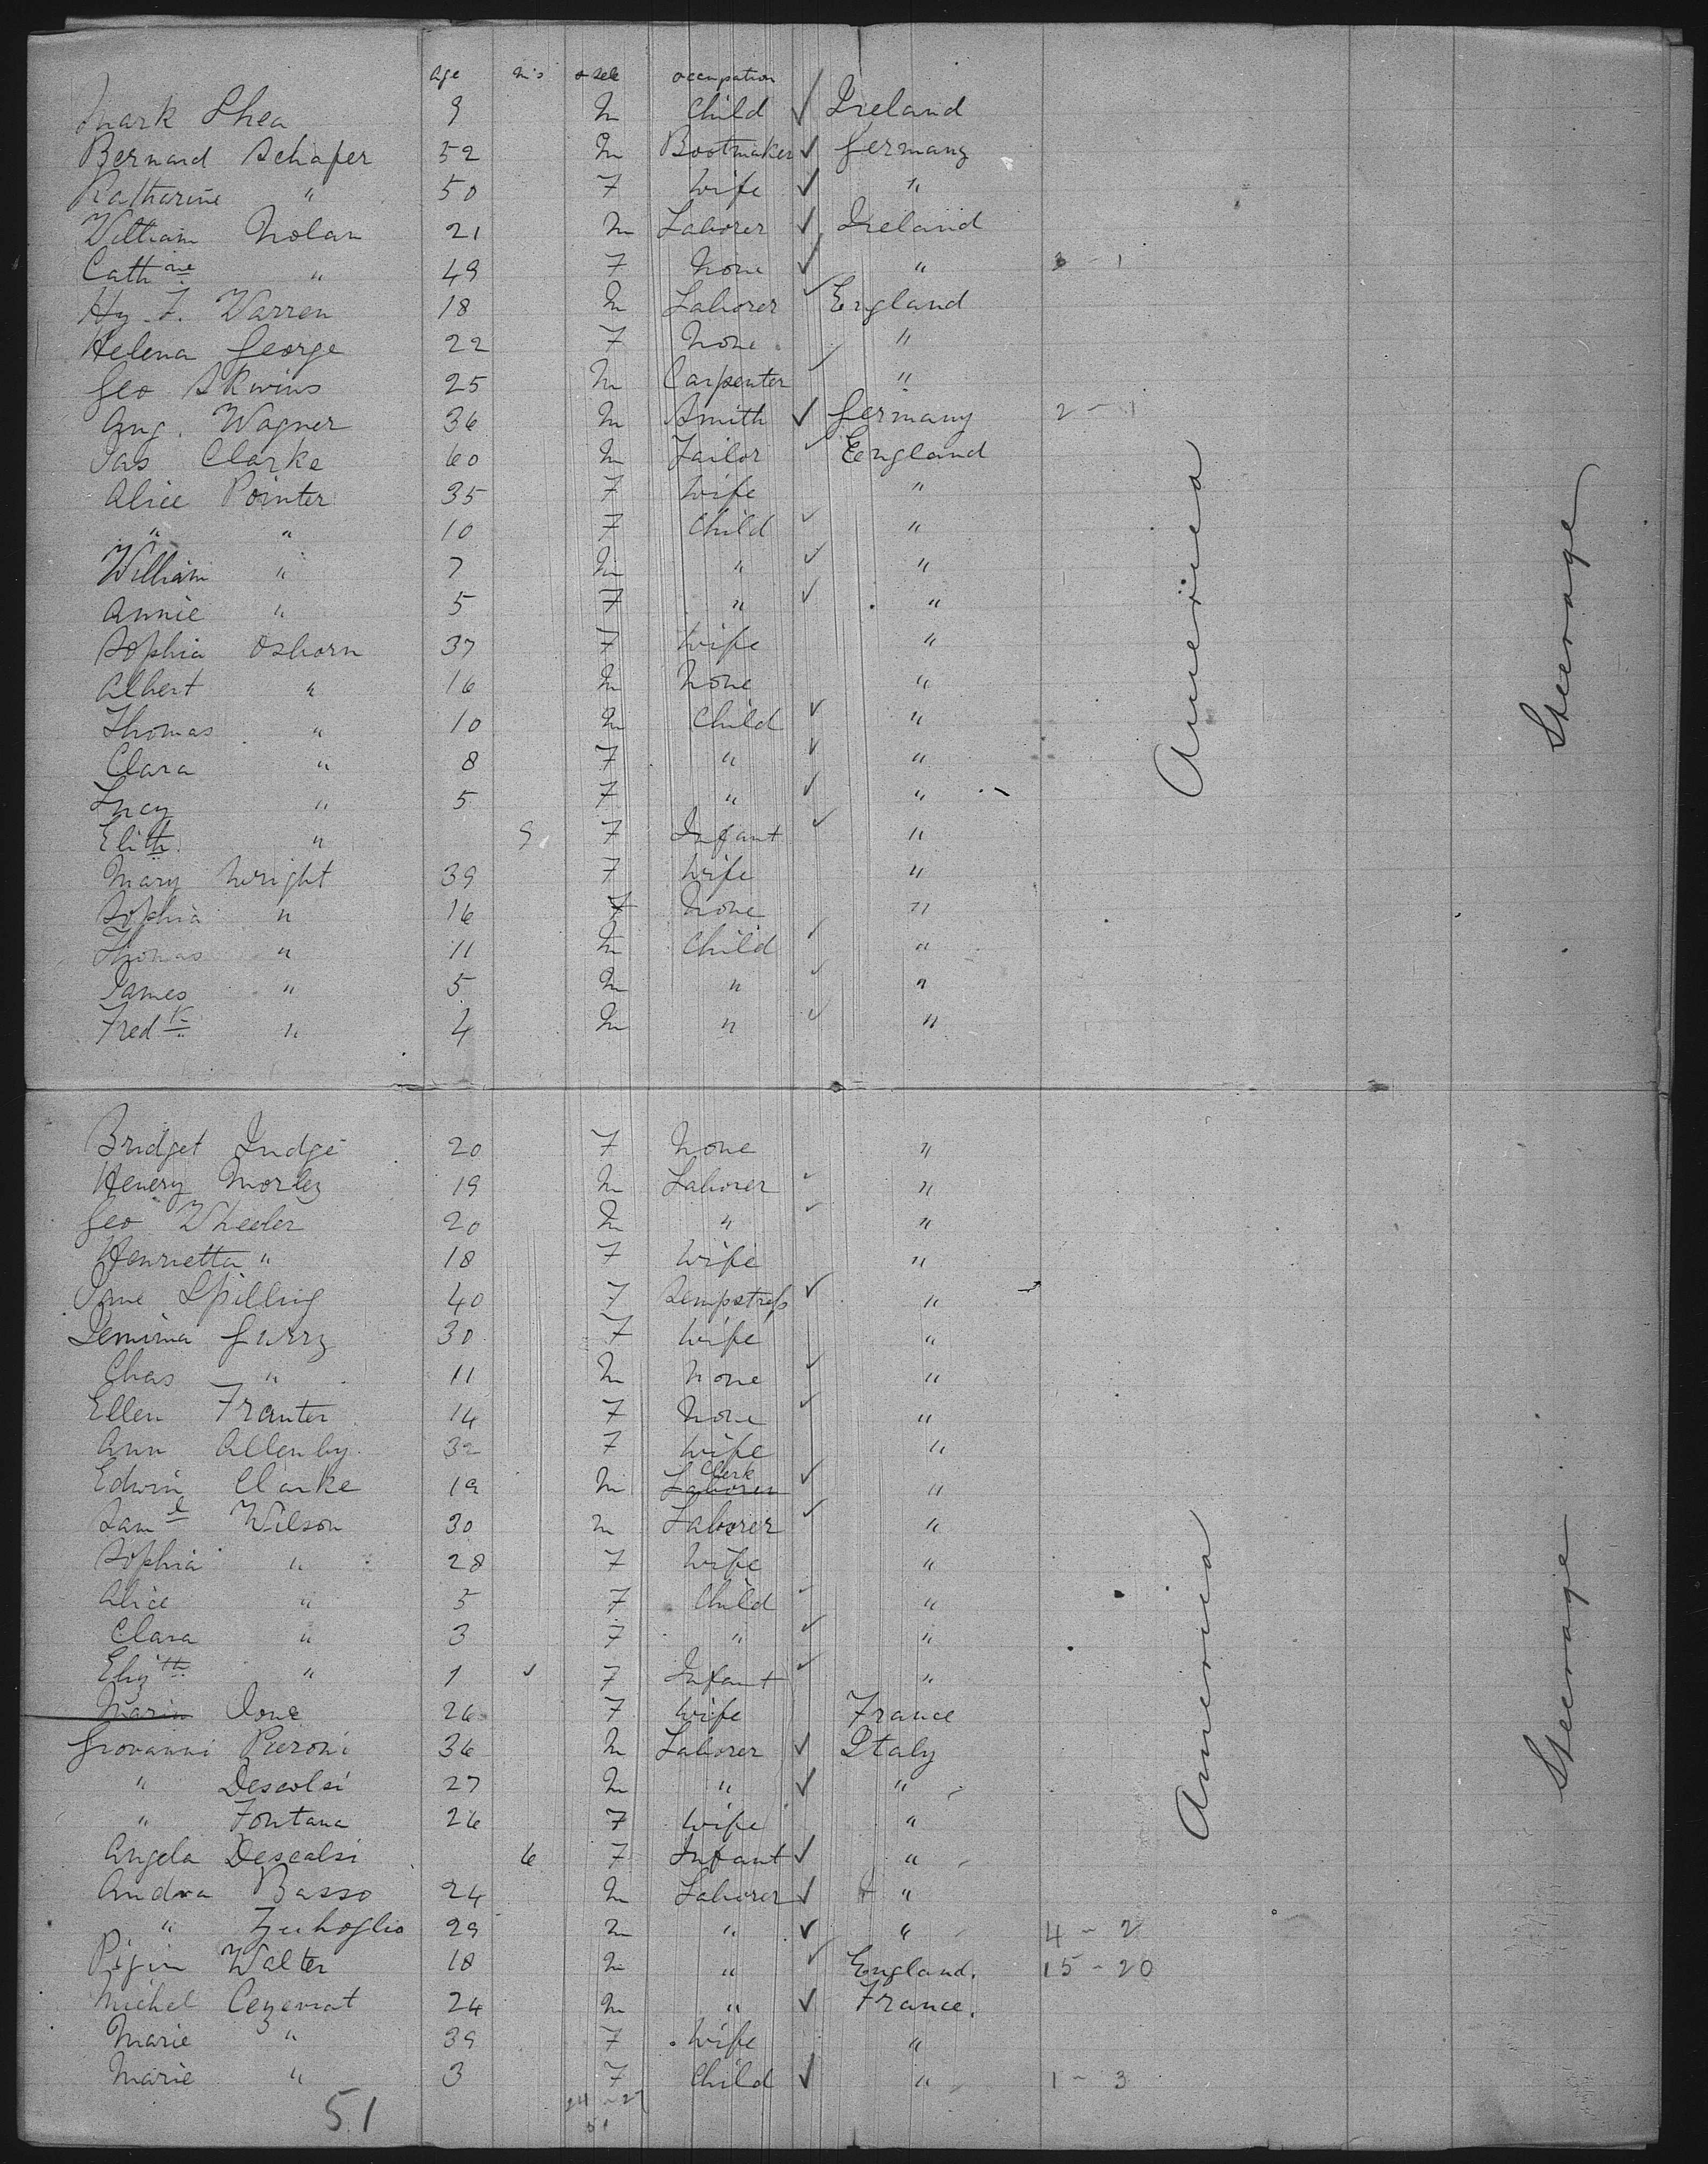 Age M's Sex occupation
Mark Shea 9 M Child ✓ Ireland
Bernard Schafer 52 M Bootmaker ✓ Germany
Katharine " 50 F Wife ✓ "
William Nolan 21 M Laborer ✓ Ireland
Cathne " 49 F None ✓ " 3 - 1
Hy. F. Warren 18 M Laborer ✓ England
Helena George 22 F None "
Geo Skivins 25 M Carpenter ✓ "
Aug. Wagner 36 M Smith ✓ Germany 2 - 1
Jas Clarke 60 M Tailor ✓ England
Alice Pointer 35 F Wife "
" " 10 F Child ✓ "
William " 7 M " ✓ "
Annie " 5 F " ✓ "
Sophia Osborn 37 F Wife "
Albert " 16 M None "
Thomas " 10 M Child ✓ "
Clara " 8 F " ✓ "
Lucy " 5 F " ✓ "
Elith " 9 F Infant ✓ "
Mary Wright 39 F Wife "
Sophia " 16 F None "
Thomas " 11 M Child ✓ "
James " 5 M " ✓ "
Fredk " 4 M " ✓ "
America
Steerage
Bridget Judge 20 F None "
Henery Morley 19 M Laborer ✓ "
Geo Wheeler 20 M " ✓ "
Henrietta " 18 F Wife "
Jane Spilling 40 F Sempstress ✓ "
Jemima Gurry 30 F Wife "
Chas " 11 M None ✓ "
Ellen Franter 14 F None ✓ "
Ann Allenby 32 F Wife "
Edwin Clarke 19 M Laborer Clerk ✓ "
Saml Wilson 30 M Laborer ✓ "
Sophia " 28 F Wife "
Alice " 5 F Child ✓ "
Clara " 3 F " ✓ "
Elizth " 1 ✓ F Infant ✓ "
Marin Jone 26 F Wife France
Giovanni Pieroni 36 M Laborer ✓ Italy
" Descolsi 27 M " ✓ "
" Fontana 26 F Wife "
Angela Descalsi 6 F Infant ✓ "
Andrea Basso 24 M Laborer ✓ "
" 29 M " ✓ " 4 - 2
Walter 18 M " ✓ England. 15 - 20
Michel 24 M " ✓ France.
Marie " 39 F Wife "
Marie " 3 F Child ✓ " 1 - 3
America
Steerage
51 24 - 27
51